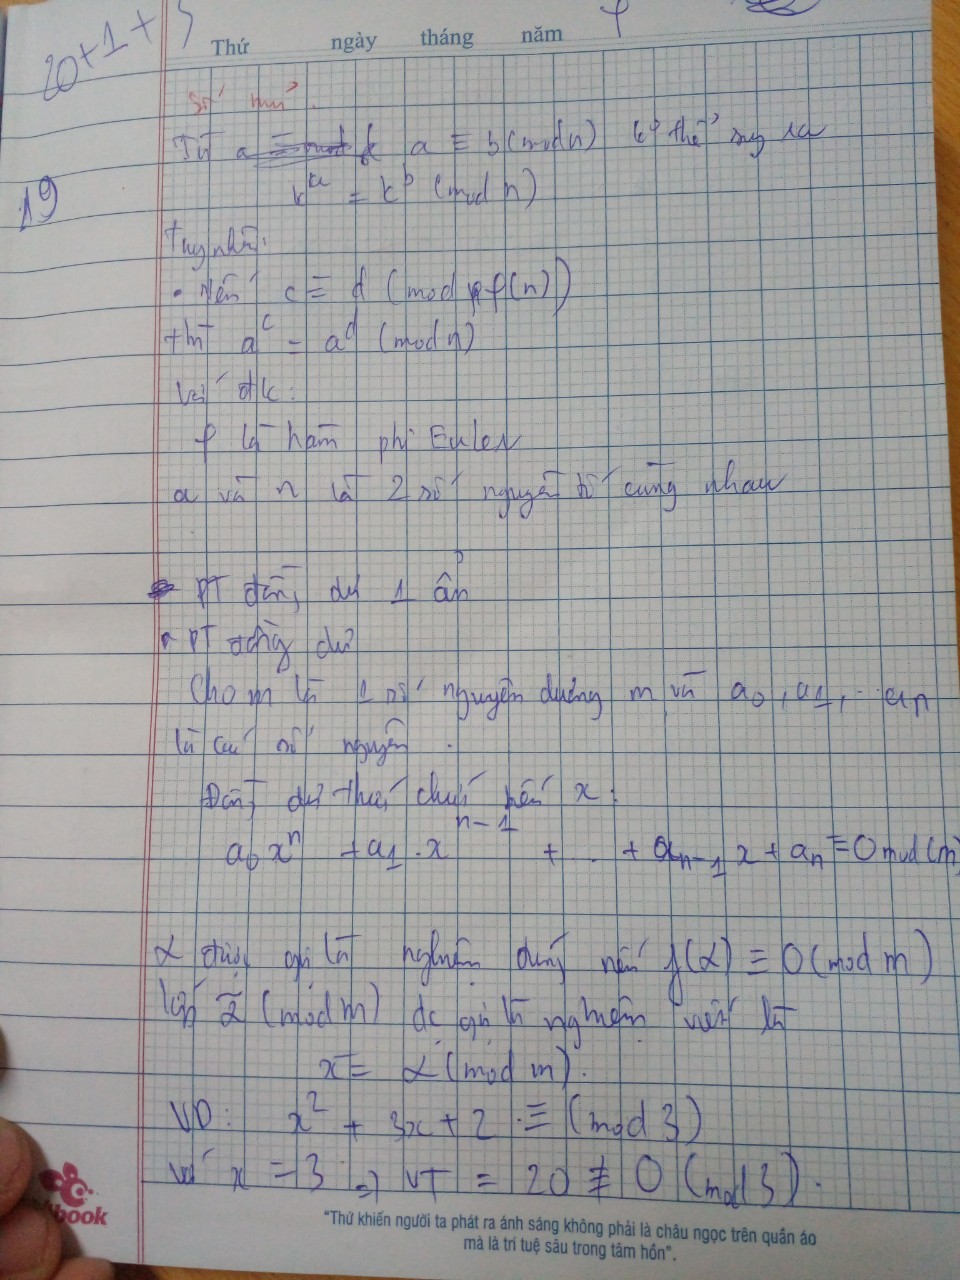 20+1+
Thứ ngày tháng năm
Số mũ.
19
Từ a a ≡ b (mod n) thể suy ra
k^a = k^b (mod n)
Tuy nhiên:
• Nếu c ≡ d (mod φ(n))
thì a^c = a^d (mod n)
Với đk:
φ là hàm phi Euler
a và n là 2 số nguyên tố cùng nhau
PT đồng dư 1 ẩn
• PT đồng dư
Cho m là 1 số nguyên dương m và a₀, a₁, .. aₙ
là các số nguyên.
Đồng dư thức chứa biến x:
a₀xⁿ + a₁.xⁿ⁻¹ + .. + aₙ₋₁x + aₙ = 0 mod (m)
α được gọi là nghiệm đúng nếu f(α) ≡ 0 (mod m)
lớp (mod m) đc gọi là nghiệm viết là
x = α (mod m).
VD: x² + 3x + 2 ≡ (mod 3)
với x = 3 ⇒ VT = 20 ≢ 0 (mod 3).
book
"Thứ khiến người ta phát ra ánh sáng không phải là châu ngọc trên quần áo
mà là trí tuệ sâu trong tâm hồn".